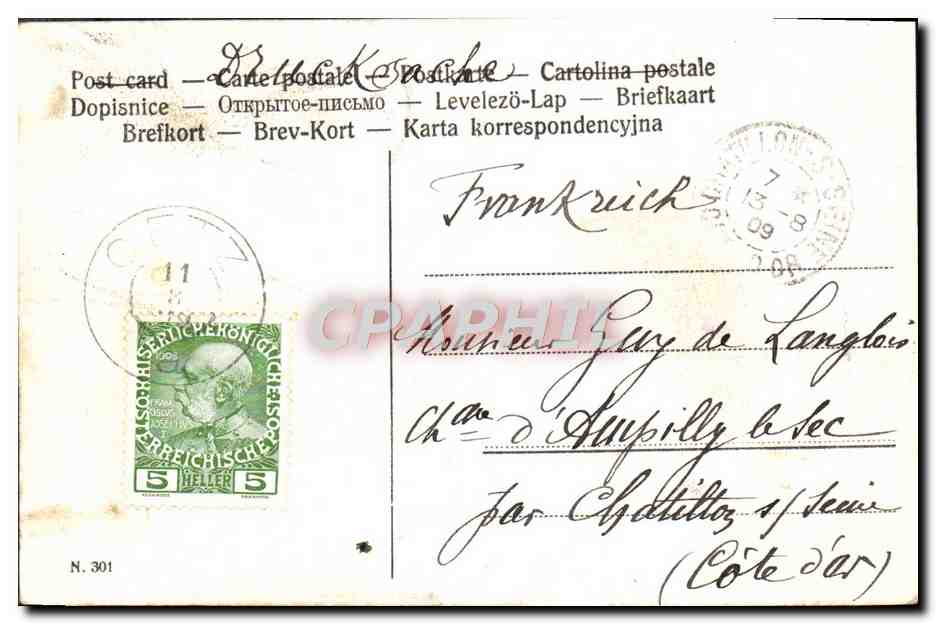 Drucksache
Post card — Carte postale — Postkarte — Cartolina postale
Dopisnice — Открытое-письмо — Levelező-Lap — Briefkaart
Brefkort — Brev-Kort — Karta korrespondencyjna
Frankreich
CHATILLON-S-SEINE
7
13 -8
09
OETZ
11
CPARHIL
1908
KAISERLICHE KÖNIGLICHE ÖSTERREICHISCHE POST
5 HELLER 5
Monsieur Guy de Langlois
Chau
d'Ampilly le Sec
par Chatillon s/ Seine
(Côte d'or)
N. 301